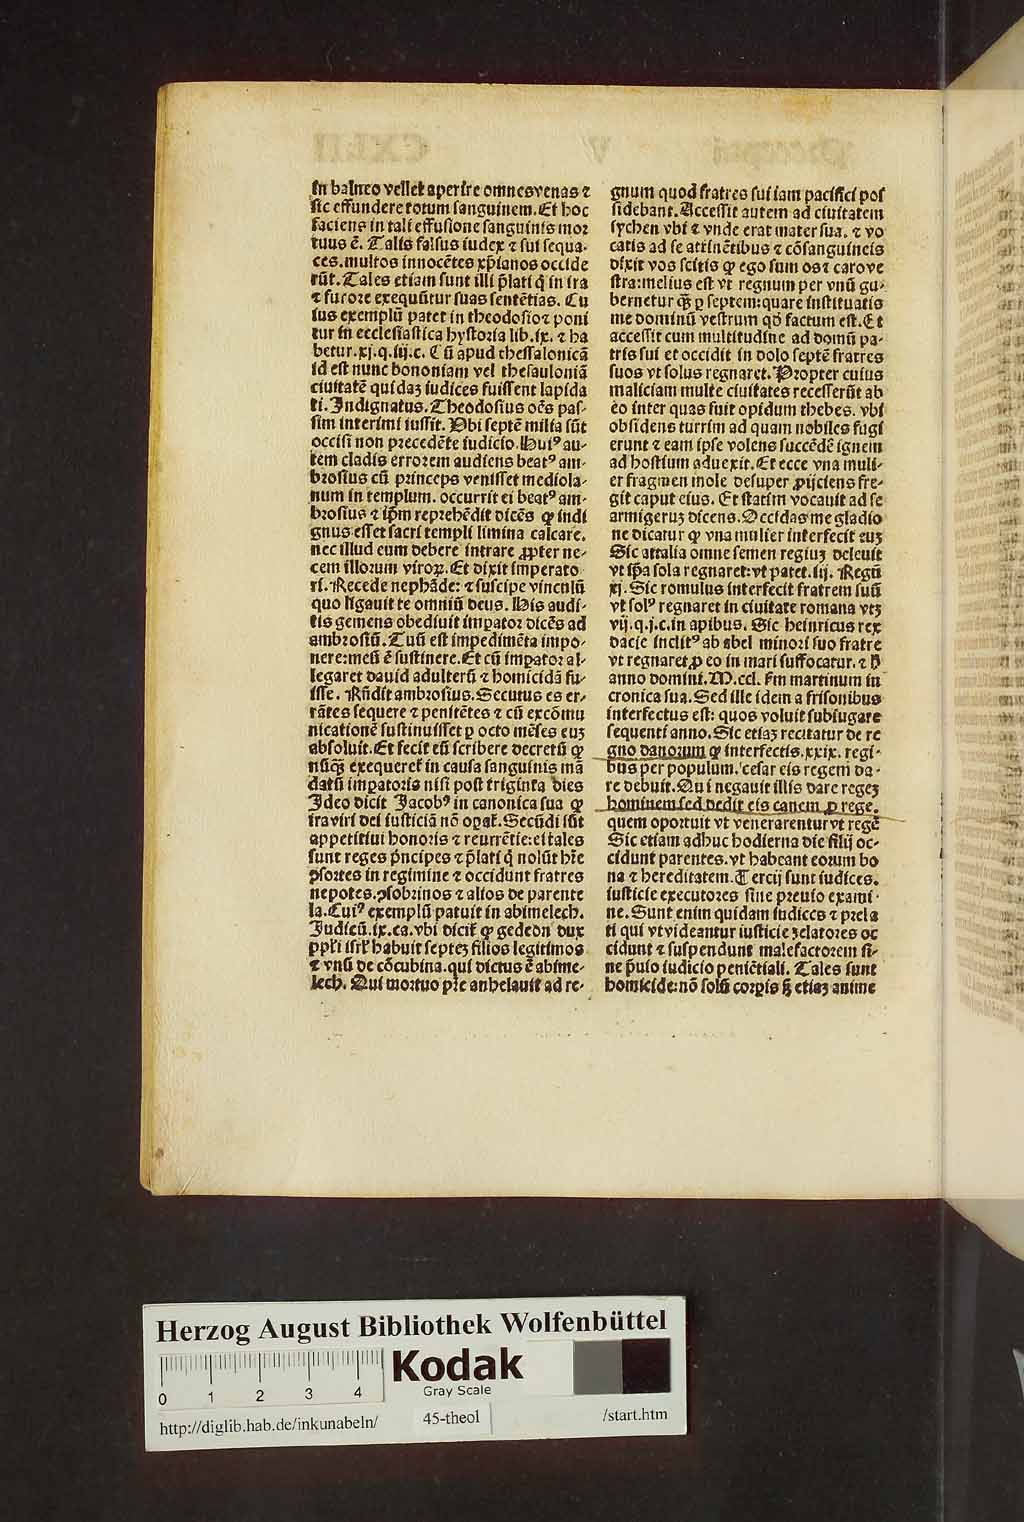 in balneo vellet aperire omnes venas ⁊
sic effundere totum sanguinem. Et hoc
faciens in tali effusione sanguinis mor
tuus ē. Talis falsus iudex ⁊ sui sequa-
ces. multos innocētes xp̄ianos occide
rūt. Tales etiam sunt illi p̄lati q̄ in ira
⁊ furore exequūtur suas sentētias. Cu
ius exemplū patet in theodosio ⁊ poni
tur in ecclesiastica hystoria lib. ix. ⁊ ha
betur. xj. q. iij. c. Cū apud thessalonicā
id est nunc bononiam vel thesauloniā
ciuitatē quidaꝫ iudices fuissent lapida
ti. Indignatus. Theodosius oēs pas-
sim interimi iussit. Vbi septē milia sūt
occisi non precedēte iudicio. Huiꝰ au-
tem cladis errorem audiens beatꝰ am-
brosius cū princeps venisset mediola-
num in templum. occurrit ei beatꝰ am-
brosius ⁊ ip̄m reprehēdit dicēs ꝙ indi
gnus esset sacri templi limina calcare.
nec illud eum debere intrare ꝓpter ne-
cem illorum viroꝝ. Et dixit imperato
ri. Recede nephāde: ⁊ suscipe vinculū
quo ligauit te omniū deus. His audi-
tis gemens obediuit imꝑator dicēs ad
ambrosiū. Tuū est impedimēta impo-
nere: meū ē sustinere. Et cū imꝑator al-
legaret dauid adulterū ⁊ homicidā fu-
isse. Rn̄dit ambrosius. Secutus es er-
rātes sequere ⁊ penitētes ⁊ cū excōmu
nicationē sustinuisset ꝑ octo mēses euꝫ
absoluit. Et fecit eū scribere decretū ꝙ
nūq̄ꝫ exequeret̄ in causa sanguinis mā
datū imꝑatoris nisi post triginta dies
Ideo dicit Jacobꝰ in canonica sua ꝙ
ira viri dei iusticiā nō oꝑat̄. Secūdi sūt
appetitiui honoris ⁊ reurētie: ei tales
sunt reges p̄ncipes ⁊ p̄lati q̄ nolūt hr̄e
ꝯsortes in regimine ⁊ occidunt fratres
nepotes. ꝯsobrinos ⁊ alios de parente
la. Cuiꝰ exemplū patuit in abimelech.
Judicū. ix. ca. vbi dicit̄ ꝙ gedeon dux
ppl̄i isrl̄ habuit septeꝫ filios legitimos
⁊ vnū de cōcubina. qui dictus ē abime-
lech. Qui mortuo pr̄e anhelauit ad re-
gnum quod fratres sui iam pacifici pos
sidebant. Accessit autem ad ciuitatem
sychen vbi ⁊ vnde erat mater sua. ⁊ vo
catis ad se attinētibus ⁊ cōsanguineis
dixit vos scitis ꝙ ego sum os ⁊ caro ve
stra: melius est vt regnum per vnū gu-
bernetur q̄ꝫ ꝑ septem: quare instituatis
me dominū vestrum qd̄ factum est. Et
accessit cum multitudine ad domū pa-
tris sui et occidit in dolo septē fratres
suos vt solus regnaret. Propter cuius
maliciam multe ciuitates recesserūt ab
eo inter quas fuit opidum thebes. vbi
obsidens turrim ad quam nobiles fugi
erunt ⁊ eam ipse volens succēdē ignem
ad hostium aduexit. Et ecce vna muli-
er fragmen mole desuper ꝓijciens fre-
git caput eius. Et statim vocauit ad se
armigeruꝫ dicens. Occidas me gladio
ne dicatur ꝙ vna mulier interfecit euꝫ
Sic attalia omne semen regiuꝫ deleuit
vt ip̄a sola regnaret: vt patet. iij. Regū
xj. Sic romulus interfecit fratrem suū
vt solꝰ regnaret in ciuitate romana vtꝫ
vij. q. j. c. in apibus. Sic heinricus rex
dacie inclitꝰ ab abel minori suo fratre
vt regnaret ꝓ eo in mari suffocatur. ⁊ h̄
anno domini. M. ccl. fm martinum in
cronica sua. Sed ille idem a frisonibus
interfectus est: quos voluit subiugare
sequenti anno. Sic etiaꝫ recitatur de re
gno danorum ꝙ interfectis. xxix. regi-
bus per populum. cesar eis regem da-
re debuit. Qui negauit illis dare regeꝫ
hominem sed dedit eis canem ꝓ rege.
quem oportuit vt venerarentur vt regē
Sic etiam adhuc hodierna die filij oc-
cidunt parentes. vt habeant eorum bo
na ⁊ hereditatem. Tercij sunt iudices.
iusticie executores sine preuio exami-
ne. Sunt enim quidam iudices ⁊ prela
ti qui vt videantur iusticie zelatores oc
cidunt ⁊ suspendunt malefactorem si-
ne p̄uio iudicio peniētiali. Tales sunt
homicide: nō solū corꝑis sꝫ etiaꝫ anime
Herzog August Bibliothek Wolfenbüttel
0 1 2 3 4
Kodak
Gray Scale
http://diglib.hab.de/inkunabeln/ 45-theol /start.htm